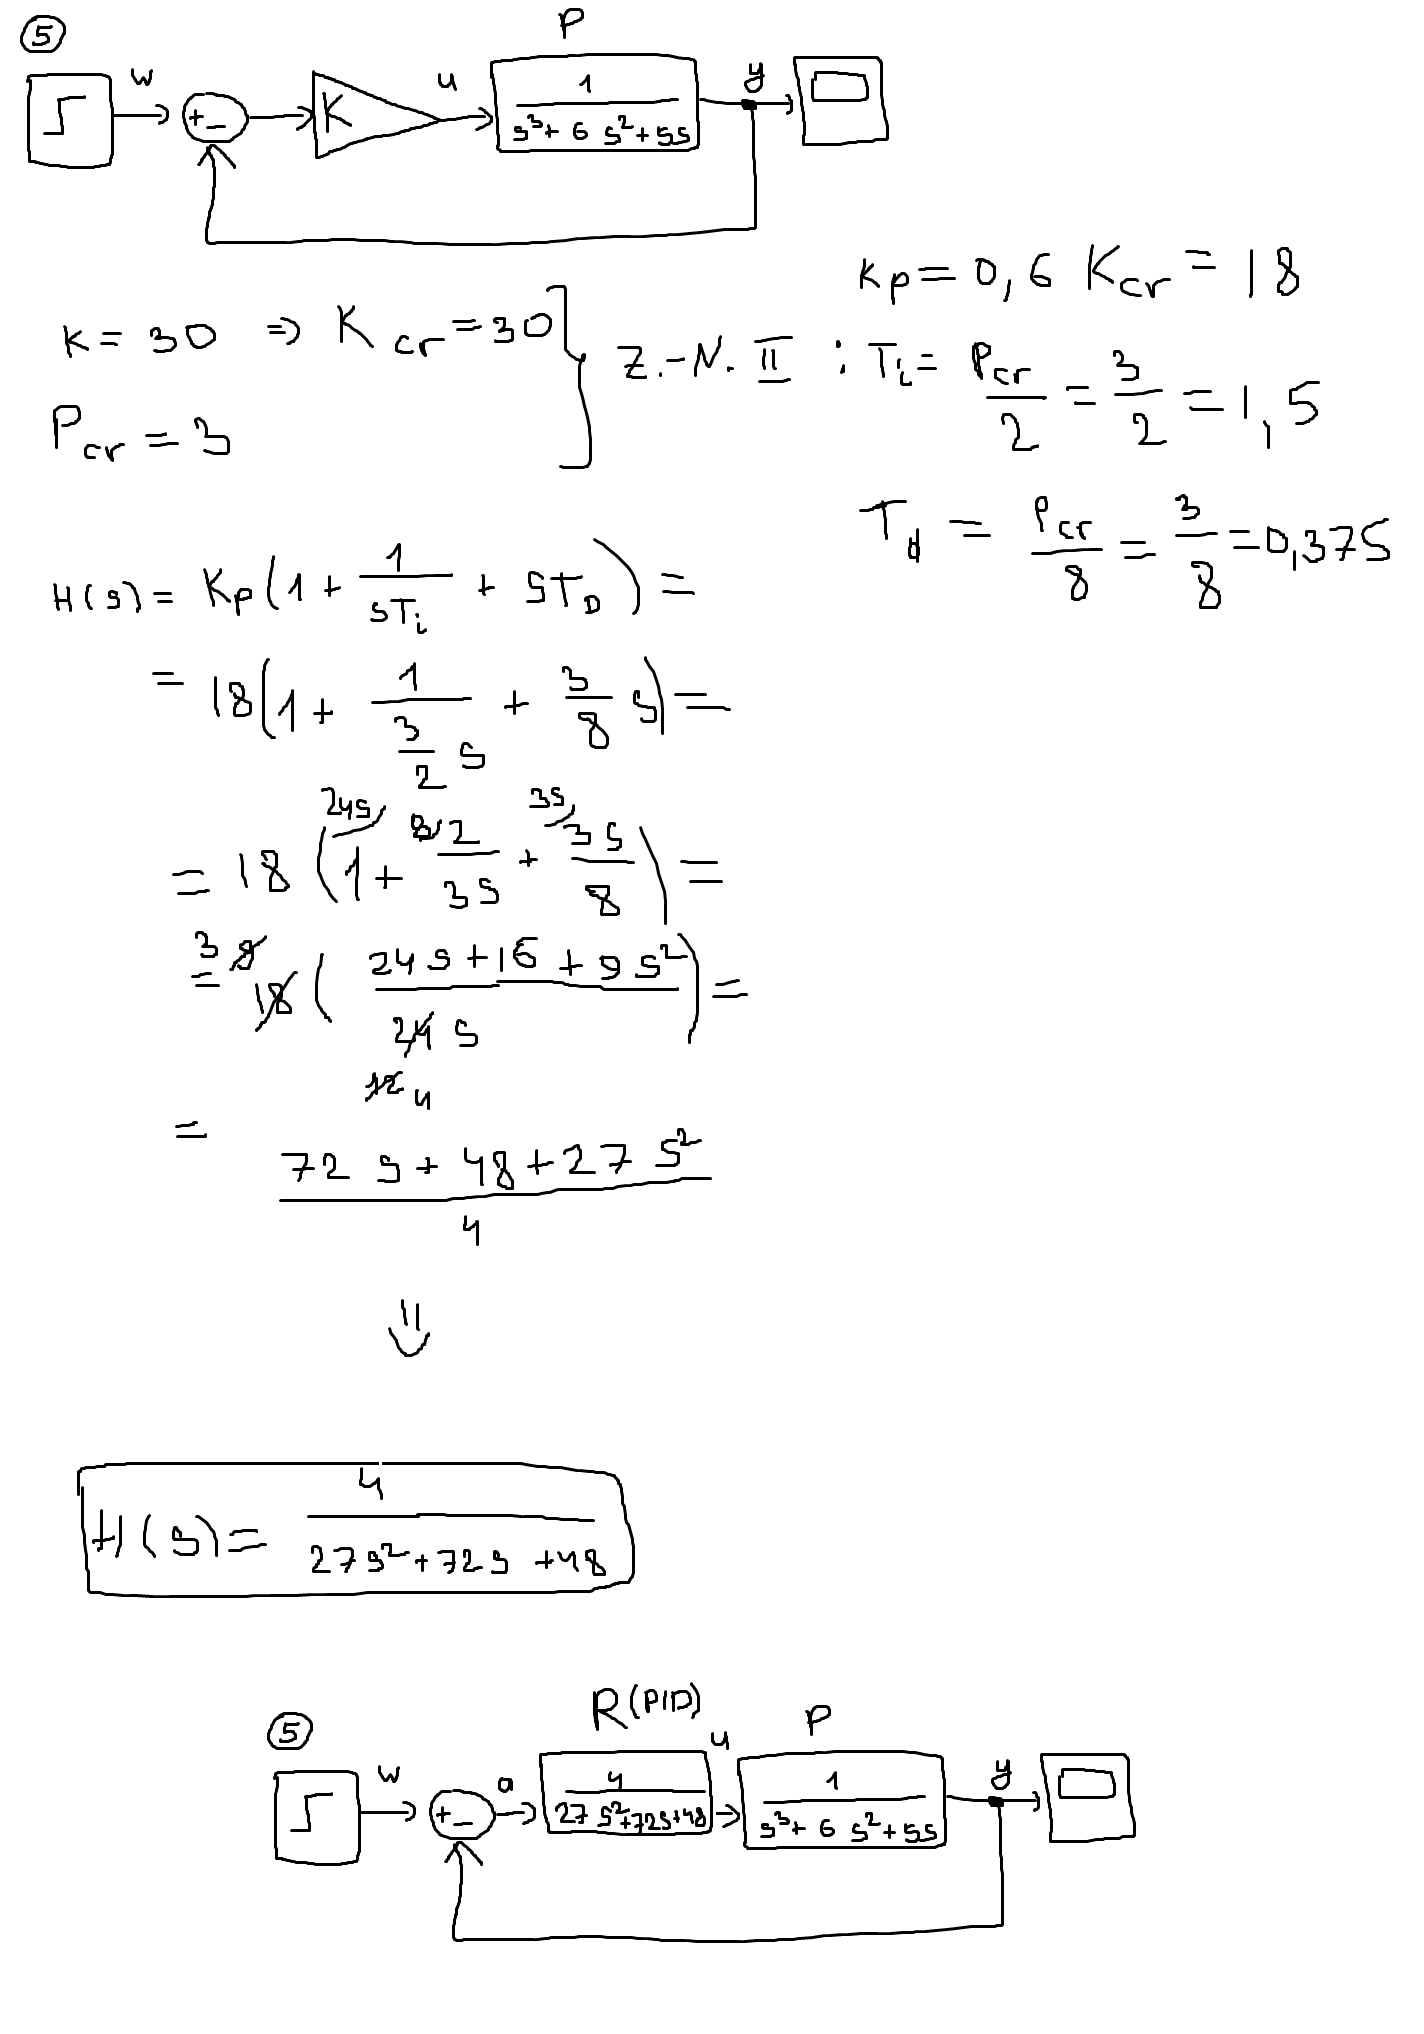 5
P
w
+ -
K
u
1
s³ + 6 s² + 5s
y
K = 30 => K cr = 30
P cr = 3
Z.-N. II :
Kp = 0,6 Kcr = 18
Ti = Pcr / 2 = 3 / 2 = 1,5
Td = Pcr / 8 = 3 / 8 = 0,375
H(s) = Kp(1 + 1 / sTi + sTD) =
= 18(1 + 1 / (3/2 s) + 3/8 s) =
24s 8 3s
= 18 (1 + 2 / 3s + 3s / 8) =
3 9
= 18 ( (24s + 16 + 9s²) / 24 s ) =
12 4
= (72 s + 48 + 27 s²) / 4
⇓
H(s) = 4 / (27s² + 72s + 48)
5
R(PID)
P
w
+ -
a
4
27 s² + 72s + 48
u
1
s³ + 6 s² + 5s
y